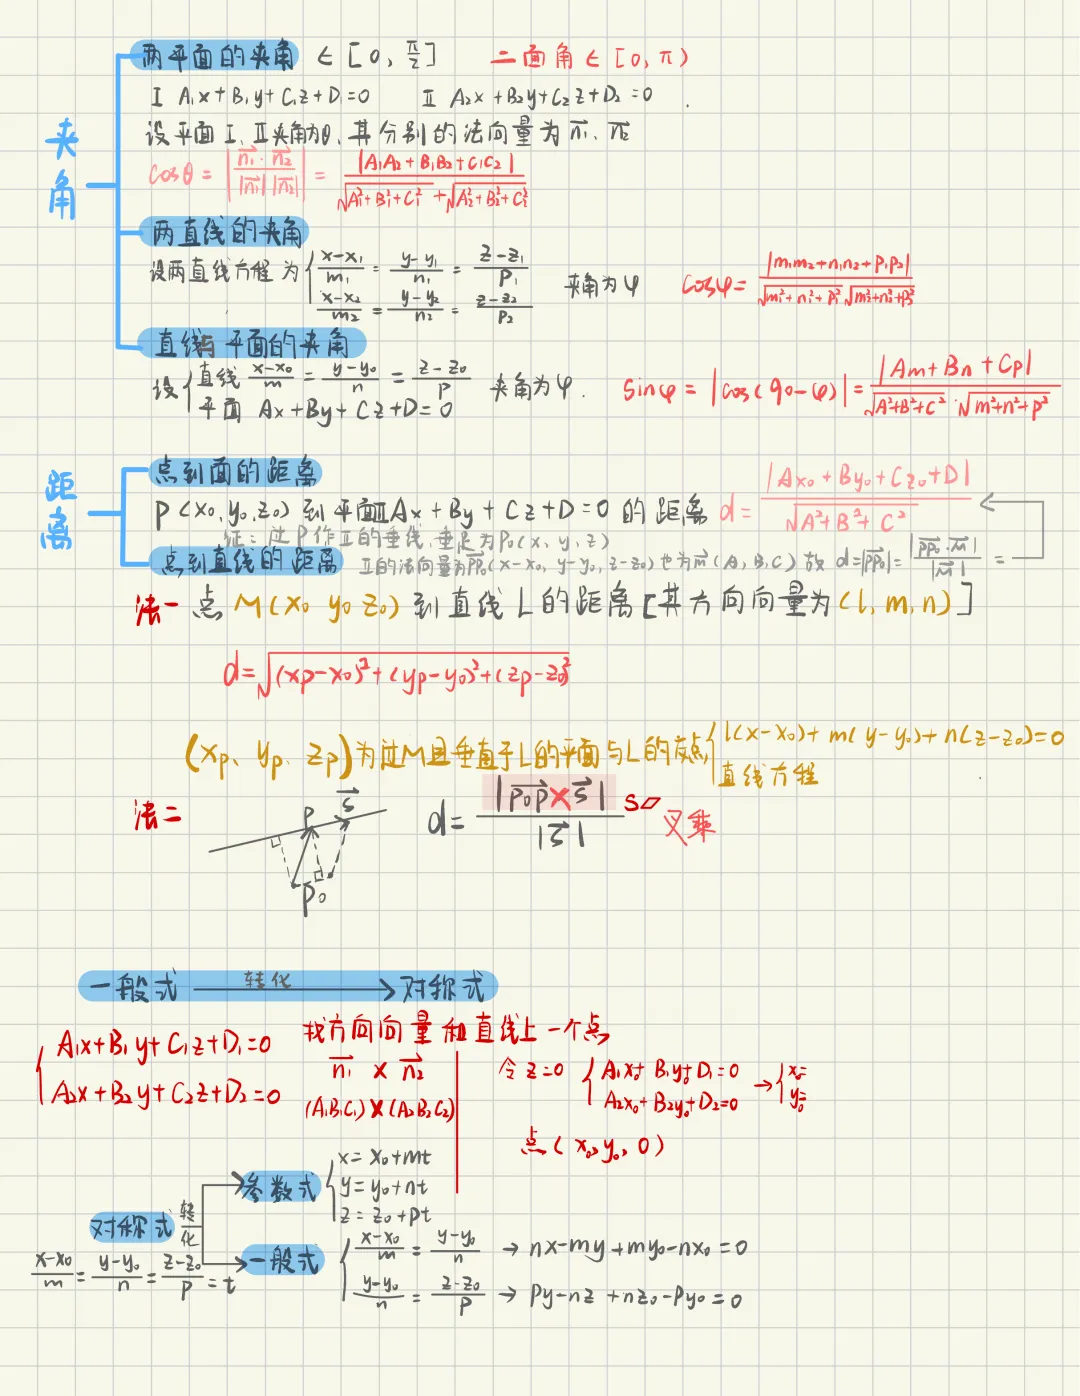 夹角
两平面的夹角 ∈ [0, π/2]  二面角 ∈ [0, π)
I A₁x + B₁y + C₁z + D₁ = 0  II A₂x + B₂y + C₂z + D₂ = 0
设平面I、II夹角为θ, 其分别的法向量为n₁⃗、n₂⃗
cosθ = |n₁⃗·n₂⃗ / |n₁⃗||n₂⃗|| = |A₁A₂ + B₁B₂ + C₁C₂| / √(A₁²+B₁²+C₁²) + √(A₂²+B₂²+C₂²)
两直线的夹角
设两直线方程为 { (x-x₁)/m₁ = (y-y₁)/n₁ = (z-z₁)/p₁
(x-x₂)/m₂ = (y-y₂)/n₂ = (z-z₂)/p₂  夹角为φ  cosφ = |m₁m₂+n₁n₂+p₁p₂| / √(m₁²+n₁²+p₁²) √(m₂²+n₂²+p₂²)
直线与平面的夹角
设 { 直线 (x-x₀)/m = (y-y₀)/n = (z-z₀)/p  夹角为φ.  sinφ = |cos(90-φ)| = |Am+Bn+Cp| / √(A²+B²+C²)·√(m²+n²+p²)
平面 Ax+By+Cz+D=0
距离
点到面的距离
P(x₀,y₀,z₀)到平面II Ax+By+Cz+D=0的距离 d = |Ax₀+By₀+Cz₀+D| / √(A²+B²+C²)
证: 过P作II的垂线,垂足为P₀(x,y,z)
点到直线的距离  II的法向量为PP₀⃗(x-x₀,y-y₀,z-z₀)也为m⃗(A,B,C)故 d=|PP₀⃗|=|PP₀⃗·m⃗|/|m⃗| =
法一 点 M(x₀ y₀ z₀)到直线L的距离[其方向向量为(l,m,n)]
d=√((xp-x₀)²+(yp-y₀)²+(zp-z₀)²)
(xp、yp、zp)为过M且垂直于L的平面与L的交点 { l(x-x₀)+m(y-y₀)+n(z-z₀)=0
直线方程
法二 P s⃗ P₀ d = |P₀P⃗ × s⃗| / |s⃗|  S▱ 叉乘
一般式 转化→ 对称式
{ A₁x+B₁y+C₁z+D₁=0
A₂x+B₂y+C₂z+D₂=0
找方向向量和直线上一个点
n₁⃗ × n₂⃗
(A₁B₁C₁)×(A₂B₂C₂)
令z=0 { A₁x₀+B₁y₀+D₁=0
A₂x₀+B₂y₀+D₂=0 → { x₀=
y₀=
点(x₀,y₀,0)
对称式 转化
(x-x₀)/m = (y-y₀)/n = (z-z₀)/p = t
参数式 { x=x₀+mt
y=y₀+nt
z=z₀+pt
一般式 { (x-x₀)/m = (y-y₀)/n → nx-my+my₀-nx₀=0
(y-y₀)/n = (z-z₀)/p → py-nz+nz₀-py₀=0